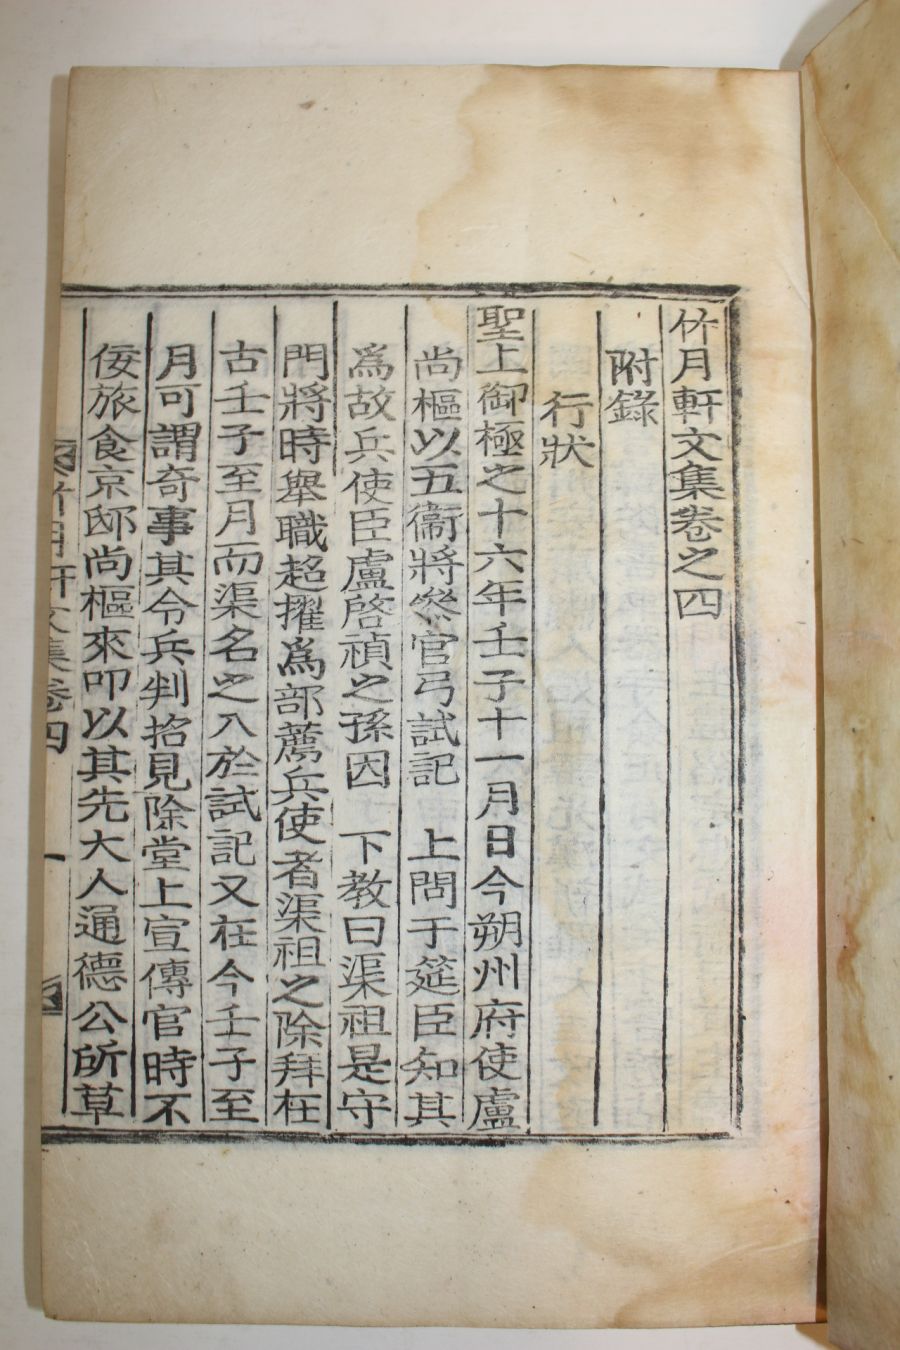 竹月軒文集卷之四
附錄
行狀
聖上御極之十六年壬子十一月日今朔州府使盧
尚樞以五衛將叅官弓試記　上問于筵臣知其
爲故兵使臣盧啓禎之孫因　下教曰渠祖是守
門將時舉職超擢爲部薦兵使者渠祖之除拜在
古壬子至月而渠名之入於試記又在今壬子至
月可謂奇事其令兵判招見除堂上宣傳官時不
佞旅食京邸尚樞來叩以其先大人通德公所草
竹月軒文集卷四　一